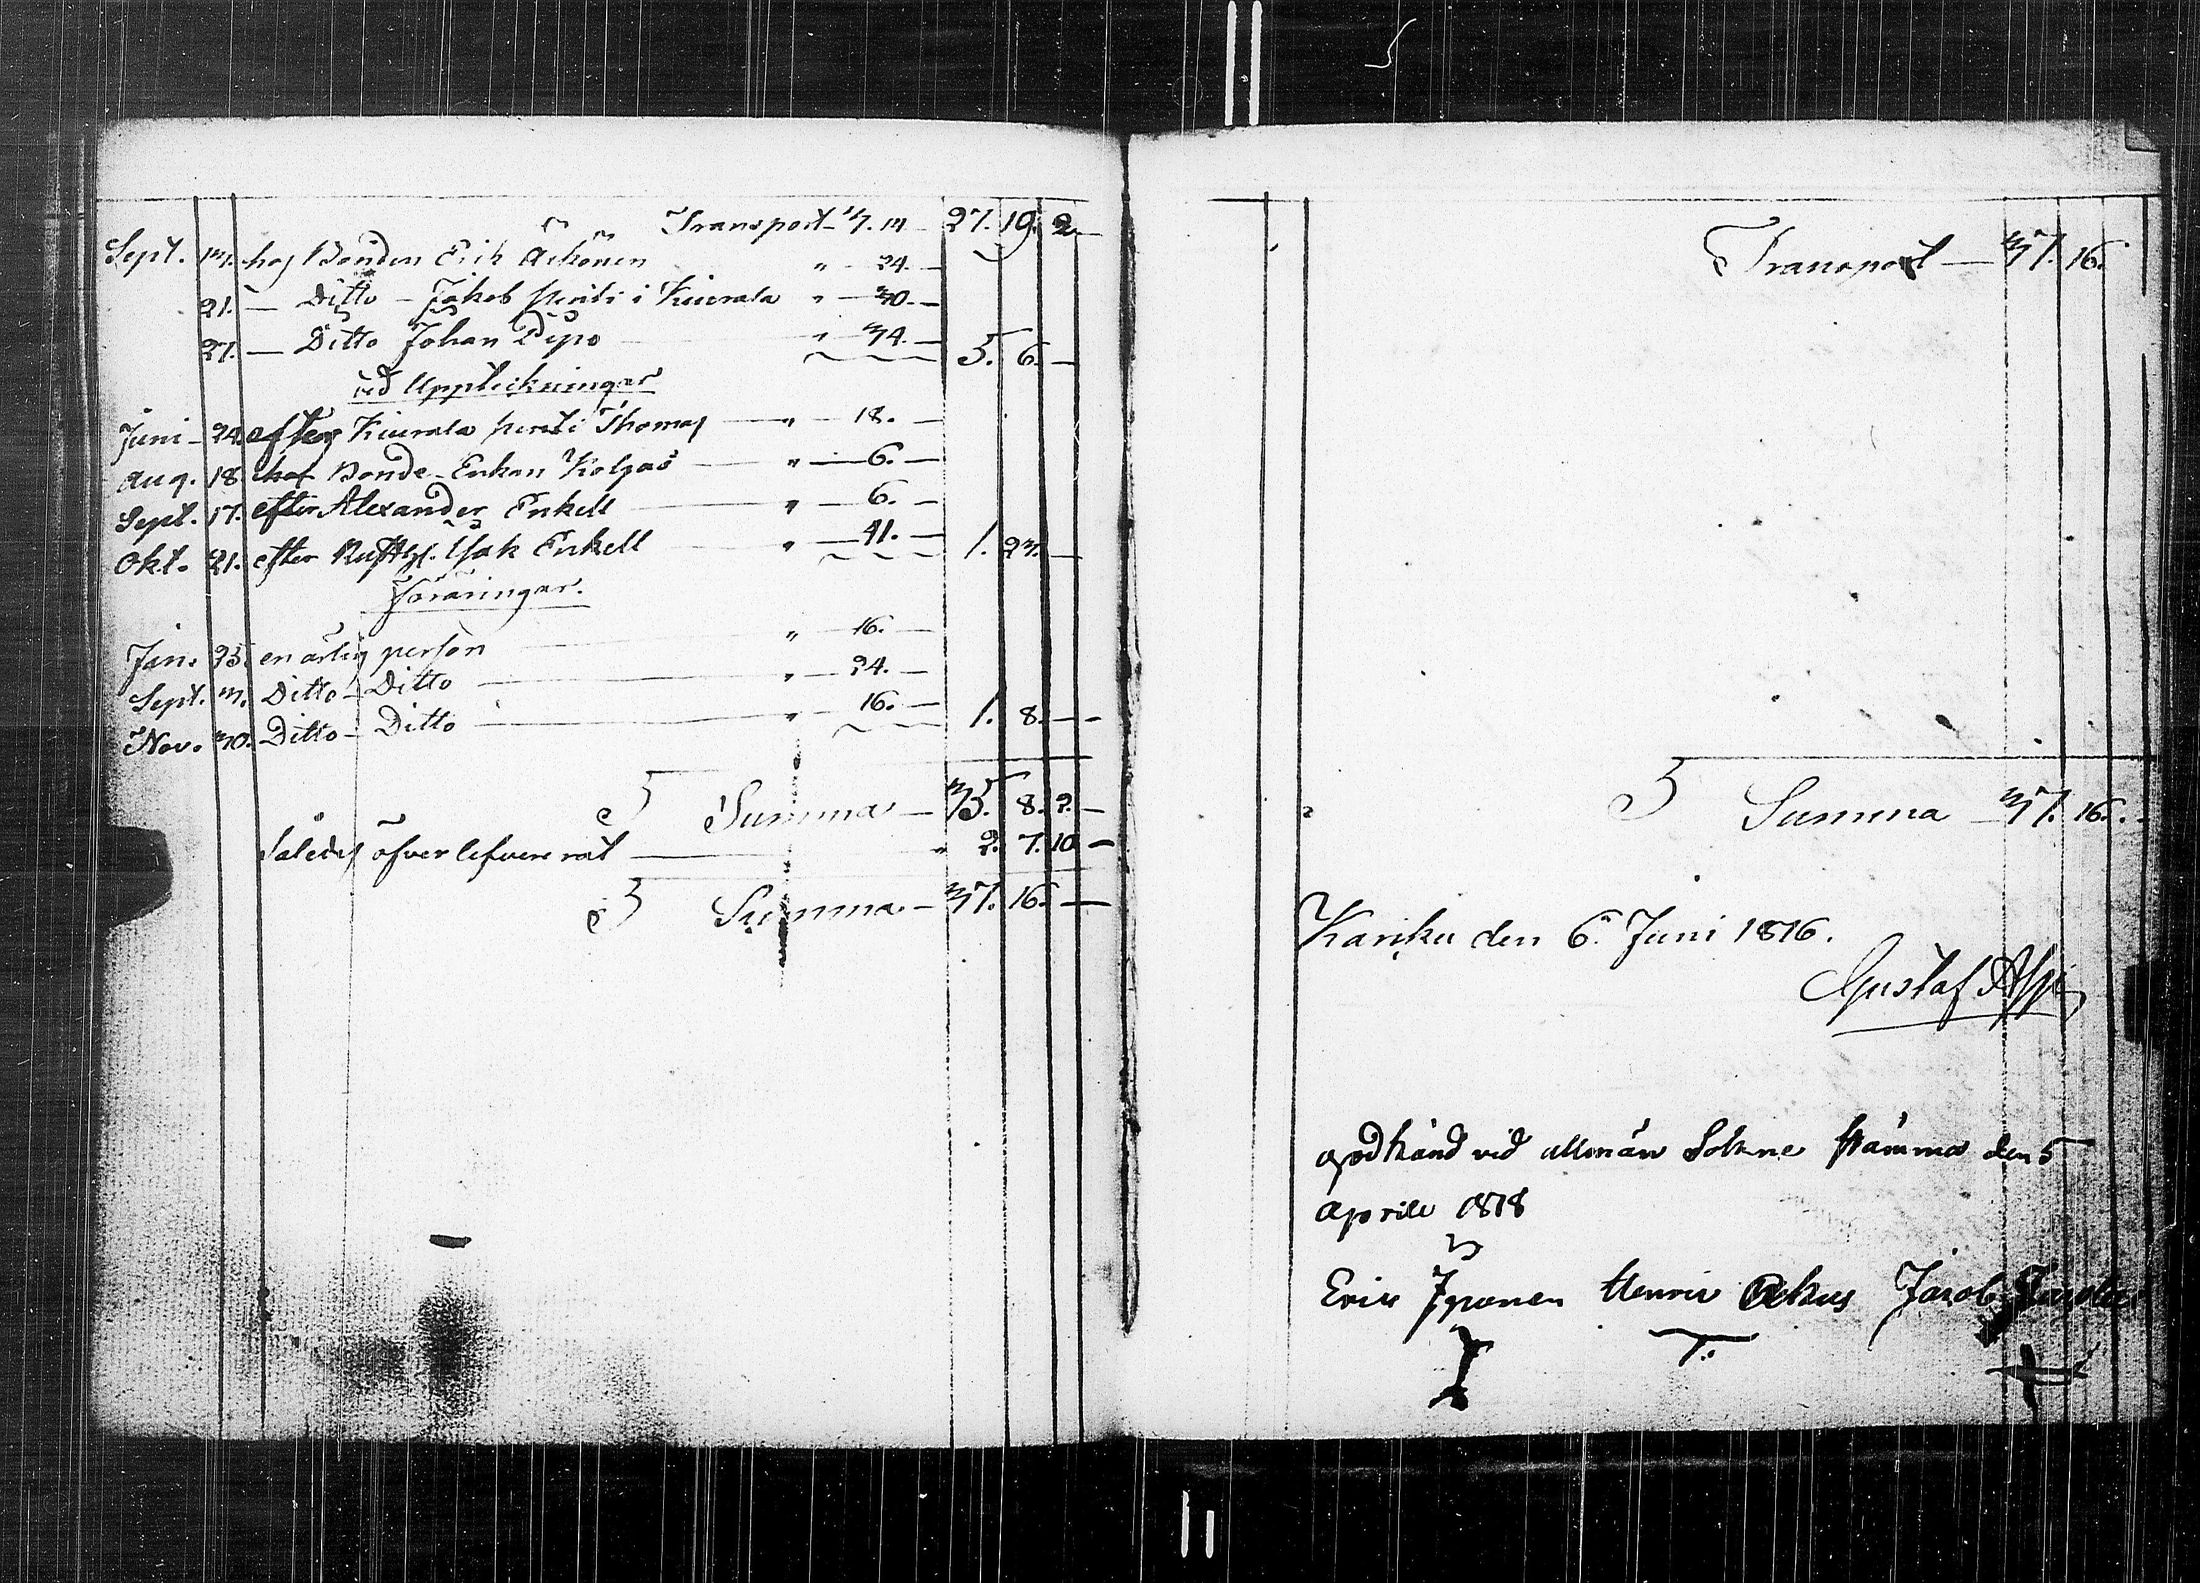 Transport 27. 19. 2.
Sept. 13. hos Bonden Erik " 24. —
21. — Ditto — Jakob Pentti i Kiurala " 30. —
27. — Ditto Johan Pipo " 34. — 5. 6. —
vid Uppteckningar
Juni 24. efter Kiurala Pentti Thomas " 18. —
Aug. 18. hos Bonde Enkan Koljas " 6. —
Sept. 17. efter Alexander Enkell " 6. —
Okt. 21. efter Isak Enkell " 41. — 1. 23. —
Föräringar.
Jan. 25. en ärlig person " 16. —
Sept. 3. Ditto — Ditto " 24. —
Nov. 30. Ditto — Ditto " 16. — 1. 8. —
Summa — 35. 8. 2. —
Således öfverlefvererat " 2. 7. 10 —
Summa — 37. 16. —
Transport — 37. 16.
Summa — 37. 16.
den 6. Juni 1816.
Gustaf
godkänd vid allmän Sokne stämma den 5
Aprill 1818
Eric Henric Jacob